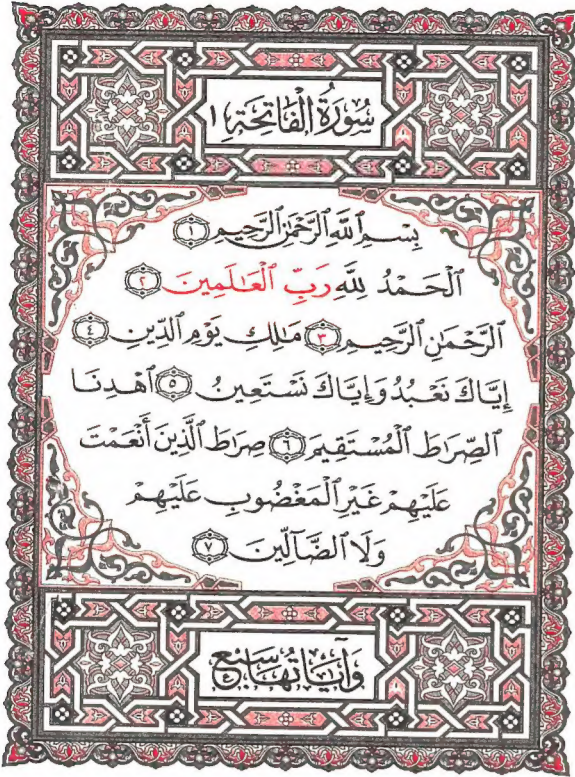 سُورَةُ الْفَاتِحَةِ ١
بِسْمِ اللَّهِ الرَّحْمَٰنِ الرَّحِيمِ ١
الْحَمْدُ لِلَّهِ رَبِّ الْعَالَمِينَ ٢
الرَّحْمَٰنِ الرَّحِيمِ ٣ مَالِكِ يَوْمِ الدِّينِ ٤
إِيَّاكَ نَعْبُدُ وَإِيَّاكَ نَسْتَعِينُ ٥ اهْدِنَا
الصِّرَاطَ الْمُسْتَقِيمَ ٦ صِرَاطَ الَّذِينَ أَنْعَمْتَ
عَلَيْهِمْ غَيْرِ الْمَغْضُوبِ عَلَيْهِمْ
وَلَا الضَّالِّينَ ٧
وَآيَاتُهَا سَبْعٌ